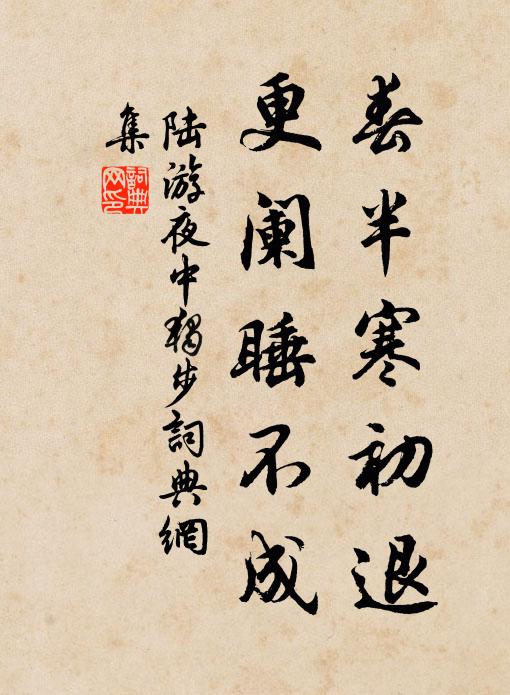 春半寒初退
更阑睡不成
陆游夜中独步詞典網
集
詞典
网印